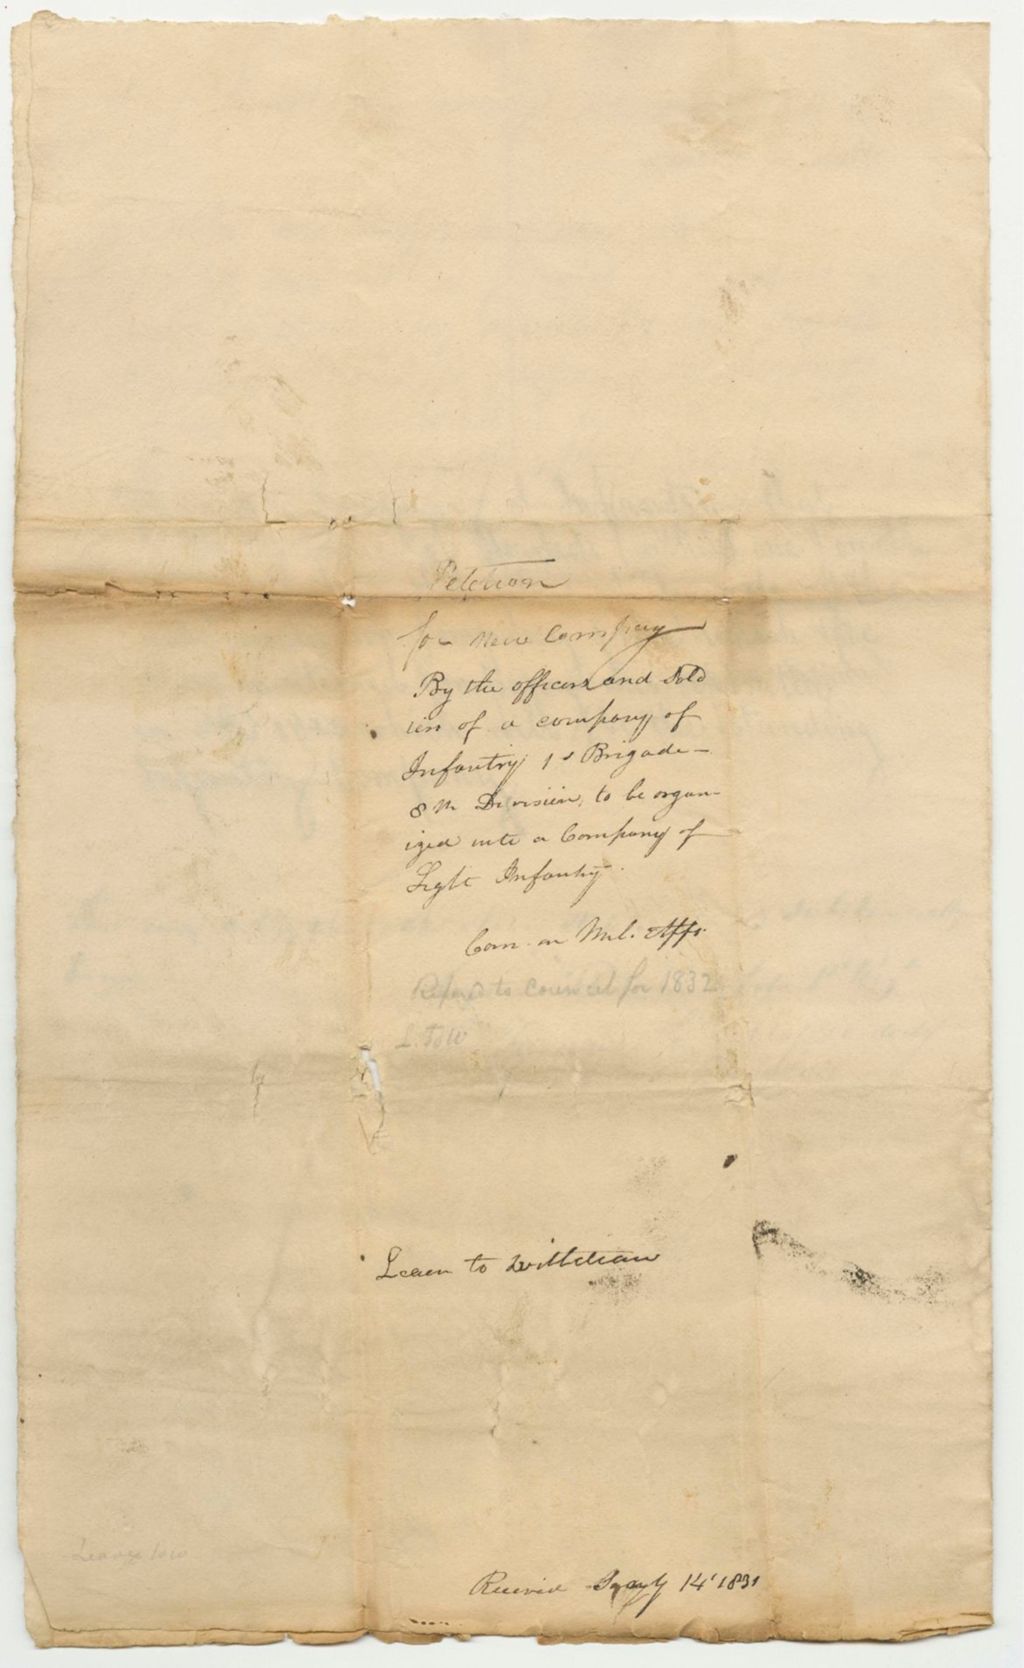 Petition
for New Company
By the officers and Sold
iers of a company of
Infantry 1st Brigade
8th Division, to be organ-
ized into a Company of
Light Infantry.
Com. on Mil. Affs.
Referd to Council for 1832
L. To W
Leave to withdraw
Leave to w
Received 14 1831